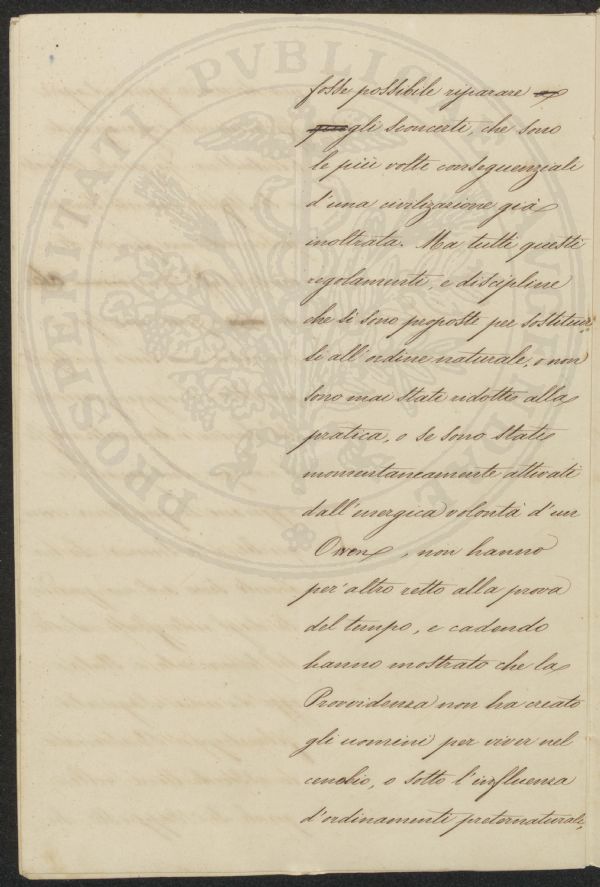 fosse possibile riparare
gli sconcerti, che sono
le più volte conseguenziali
d'una civilizazione già
inoltrata. Ma tutti questi
regolamenti, e discipline
che si sono proposte per sostituir
si all'ordine naturale, o non
sono mai stati ridotti alla
pratica, o se sono stati
momentaneamente attivati
dall'energica volontà d'un
Owen, non hanno
per'altro retto alla prova
del tempo, e cadendo
hanno mostrato che la
Provvidenza non ha creato
gli uomini per viver nel
cerchio, o sotto l'influenza
d'ordinamenti preternaturali,
PROSPERITATI PVBLICAE